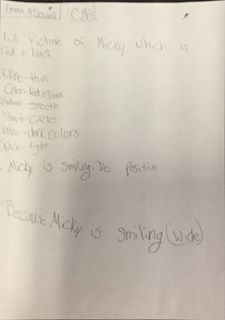 CMB
1. A Picture of Micky which is
Red & black
2. Line-thin
Color-Red & Black
smooth
Shape-Circles
Value-dark colors
Space-tight
Micky is Smiling. Its Positive
Because Micky is smiling (wide)